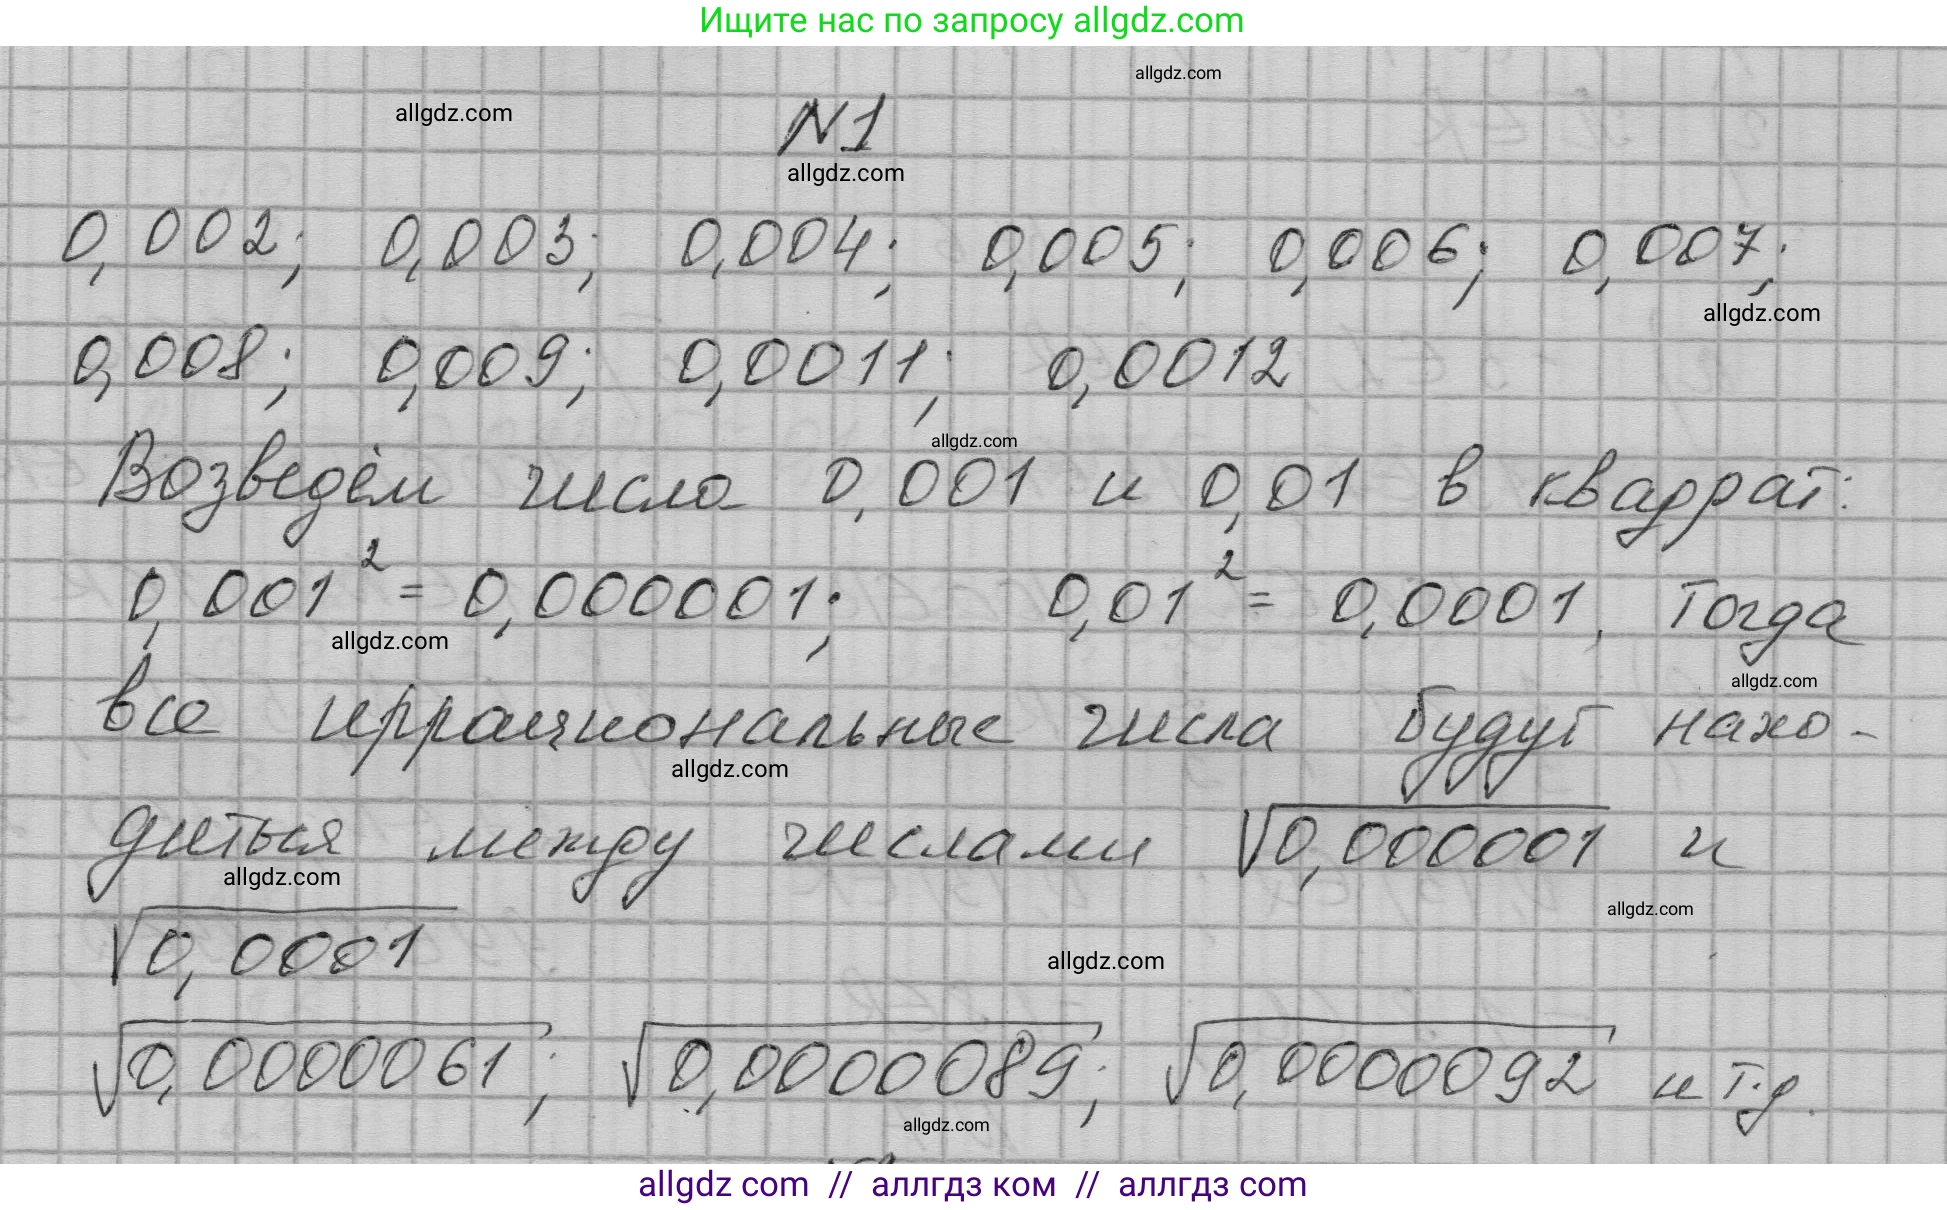 Ищите нас по запросу allgdz.com
allgdz.com
allgdz.com
N1
allgdz.com
0,002; 0,003; 0,004; 0,005; 0,006; 0,007;
allgdz.com
0,008; 0,009; 0,0011; 0,0012
allgdz.com
Возведём числа 0,001 и 0,01 в квадрат:
0,001² = 0,000001; 0,01² = 0,0001. Тогда
allgdz.com
allgdz.com
все иррациональные числа будут нахо-
allgdz.com
диться между числами √0,000001 и
allgdz.com
allgdz.com
√0,0001
allgdz.com
√0,0000061; √0,0000089; √0,0000092 и т.д.
allgdz.com
allgdz com // аллгдз ком // аллгдз com